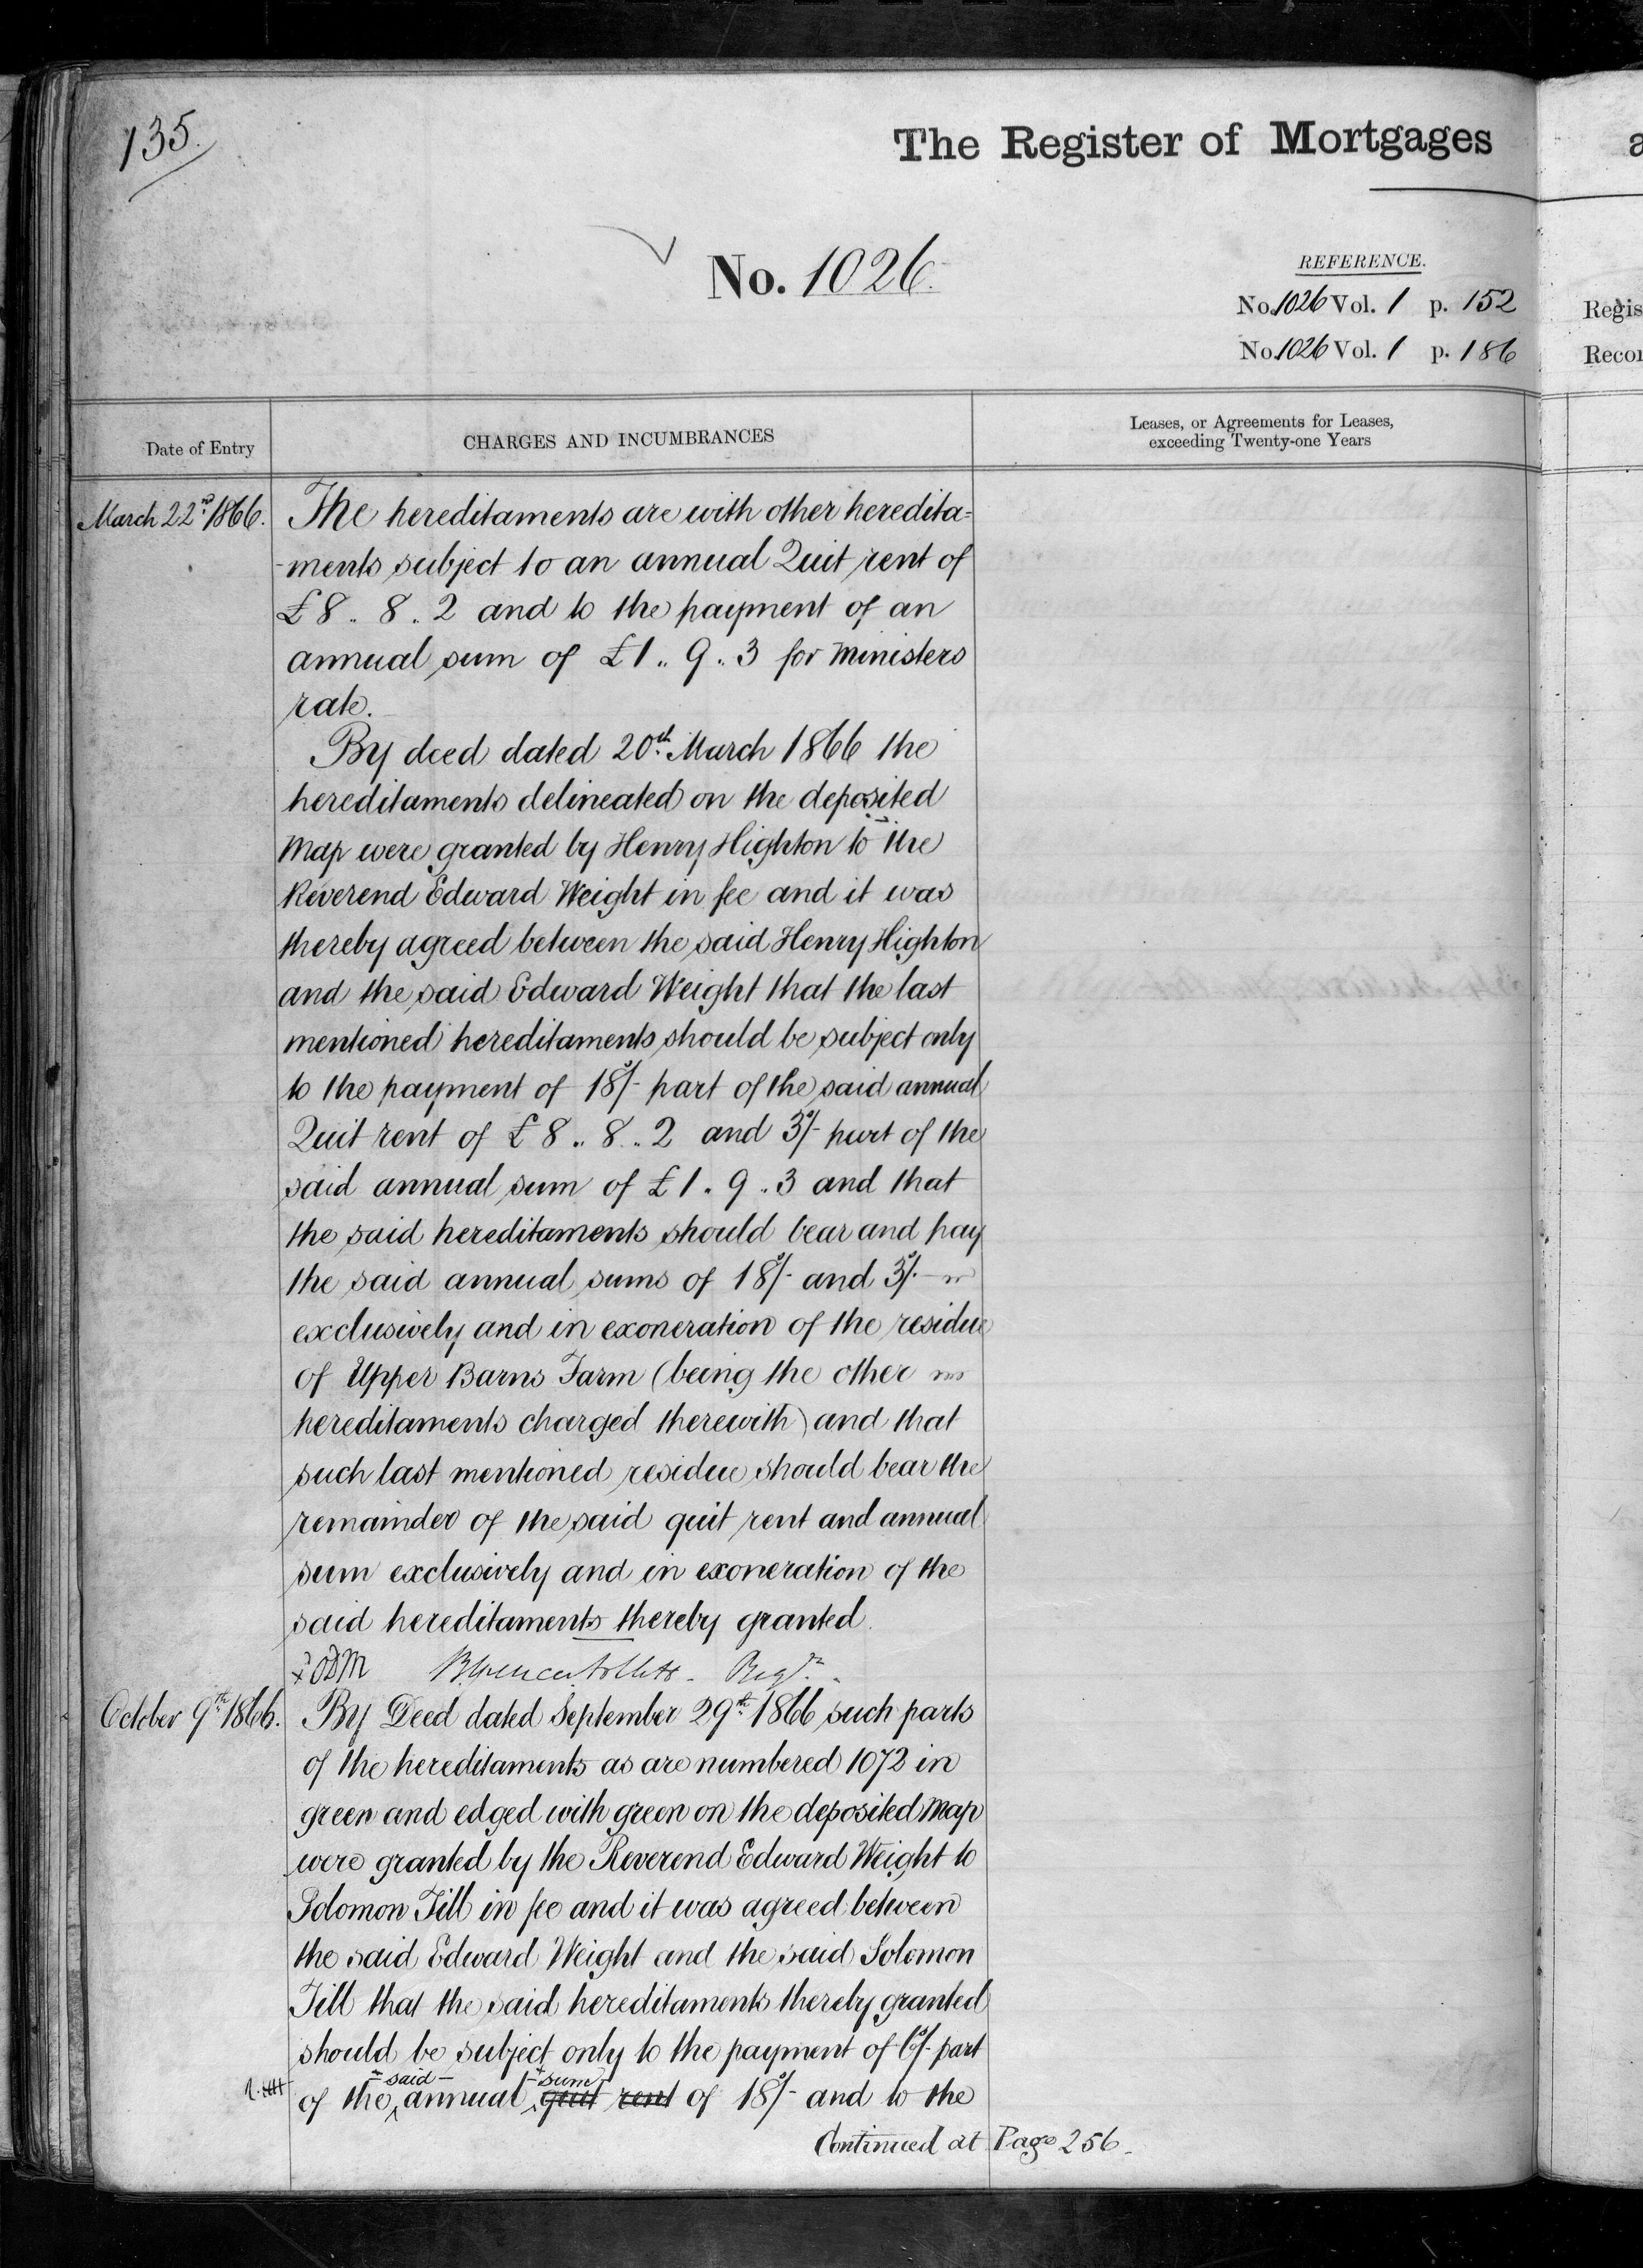 135.
The Register of Mortgages
No. 1026.
REFERENCE.
No. 1026 Vol. 1 p. 152
No. 1026 Vol. 1 p. 186
Regis
Recor
Date of Entry
CHARGES AND INCUMBRANCES
Leases, or Agreements for Leases,
exceeding Twenty-one Years
March 22nd 1866. The hereditaments are with other heredita=
-ments subject to an annual Quit rent of
£8 .. 8 .. 2 and to the payment of an
annual sum of £1 .. 9 .. 3 for Ministers
rate.
By deed dated 20th March 1866 the
hereditaments delineated on the deposited
Map were granted by Henry Highton to the
Reverend Edward Weight in fee and it was
thereby agreed between the said Henry Highton
and the said Edward Weight that the last
mentioned hereditaments should be subject only
to the payment of 18s/- part of the said annual
Quit rent of £8 .. 8 .. 2 and 3s/- part of the
said annual sum of £1 .. 9 .. 3 and that
the said hereditaments should bear and pay
the said annual sums of 18s/- and 3s/-
exclusively and in exoneration of the residue
of Upper Barns Farm (being the other
hereditaments charged therewith) and that
such last mentioned residue should bear the
remainder of the said quit rent and annual
sum exclusively and in exoneration of the
said hereditaments thereby granted.
Regr.
October 9th 1866. By Deed dated September 29th 1866 such parts
of the hereditaments as are numbered 1072 in
green and edged with green on the deposited Map
were granted by the Reverend Edward Weight to
Solomon Till in fee and it was agreed between
the said Edward Weight and the said Solomon
Till that the said hereditaments thereby granted
should be subject only to the payment of 6s/- part
of the said annual sum quit rent of 18s/- and to the
Continued at Page 256.